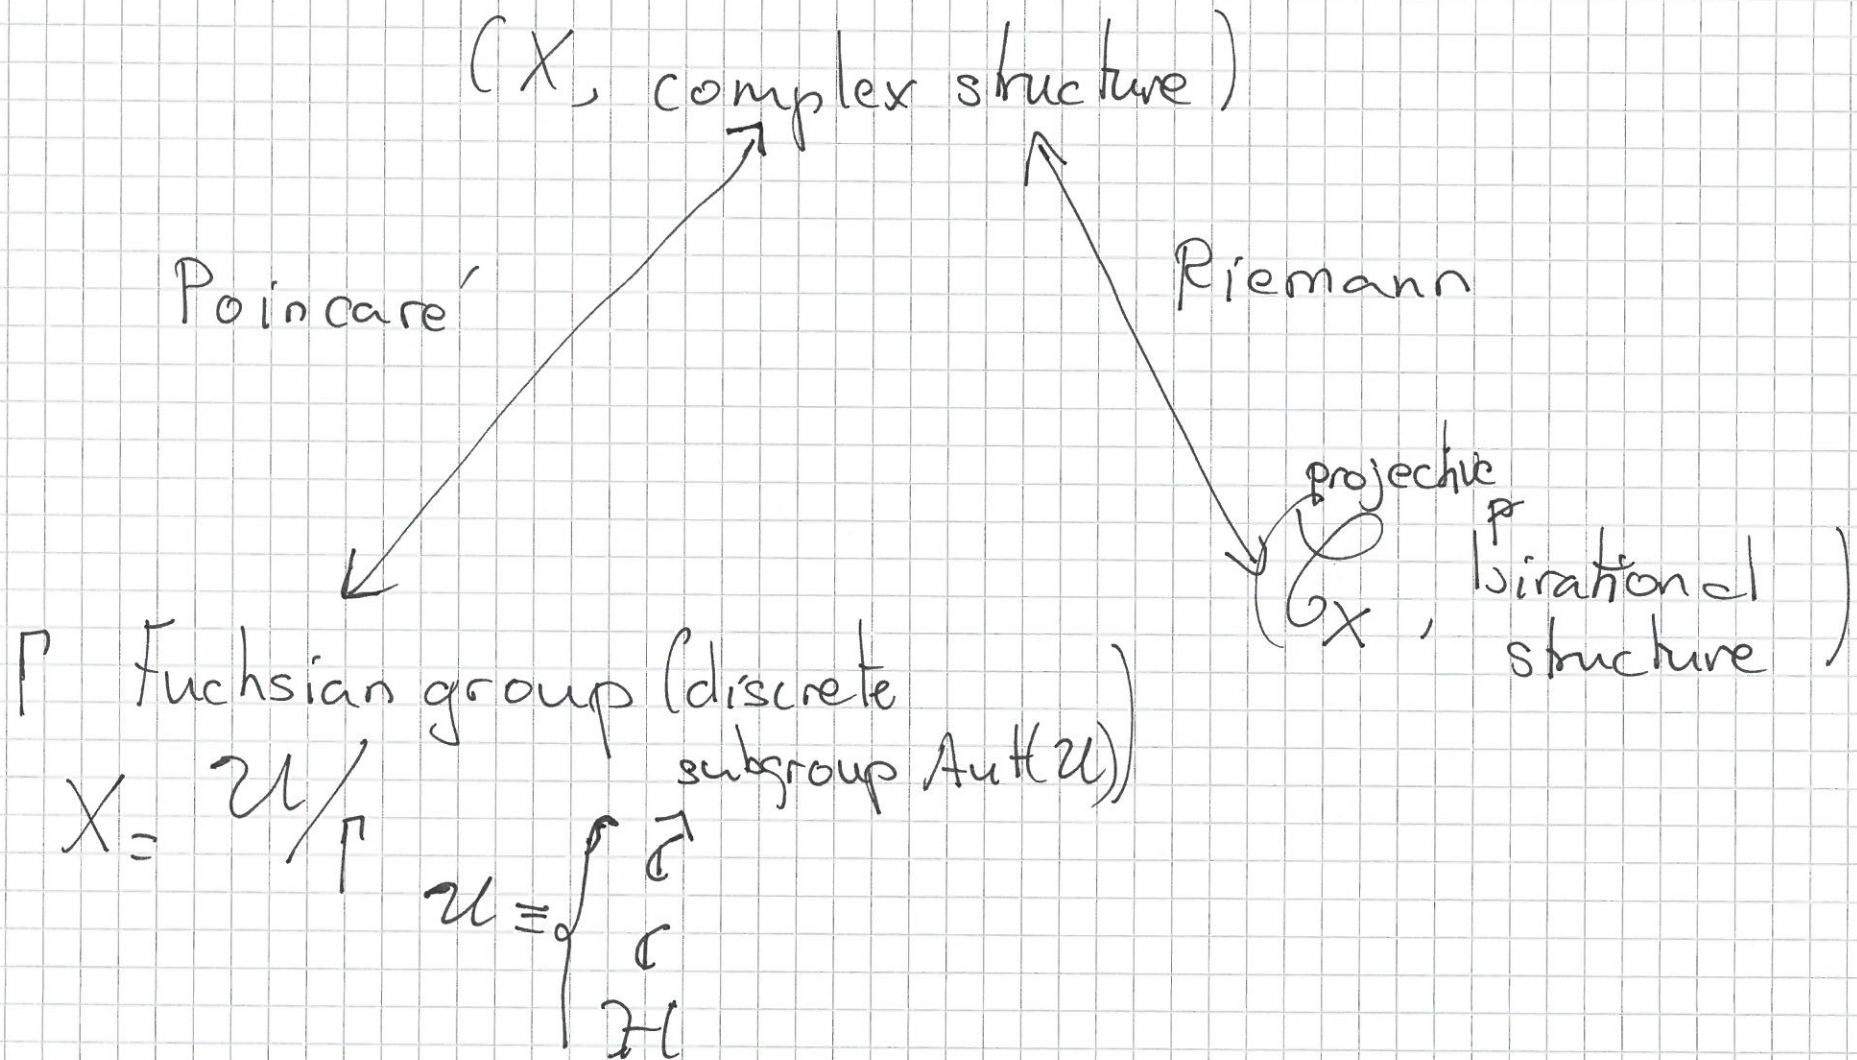 (X, complex structure)
Poincaré
Riemann
projective
(𝒞_X, birational
structure)
Γ Fuchsian group (discrete
subgroup Aut(𝒰))
X = 𝒰/Γ
𝒰 ≡ { Ĉ
ℂ
ℋ